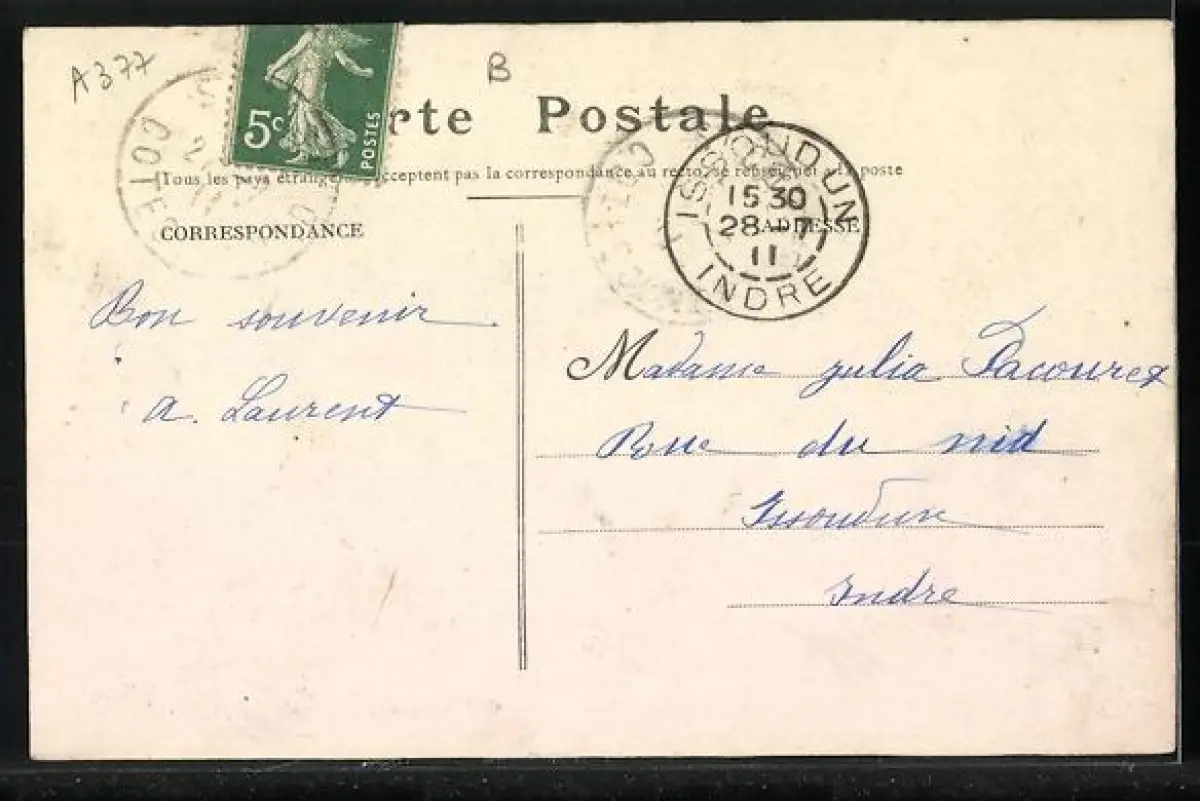 A377
B
5c
POSTES
rte Postale
Tous les pays étrangers n'acceptent pas la correspondance au recto, se renseigner à la poste
CORRESPONDANCE
ADRESSE
ISSOUDUN
15 30
28 - 7
11
INDRE
Bon souvenir
A. Laurent
Madame Julia
Rue du nid
Issoudun
Indre